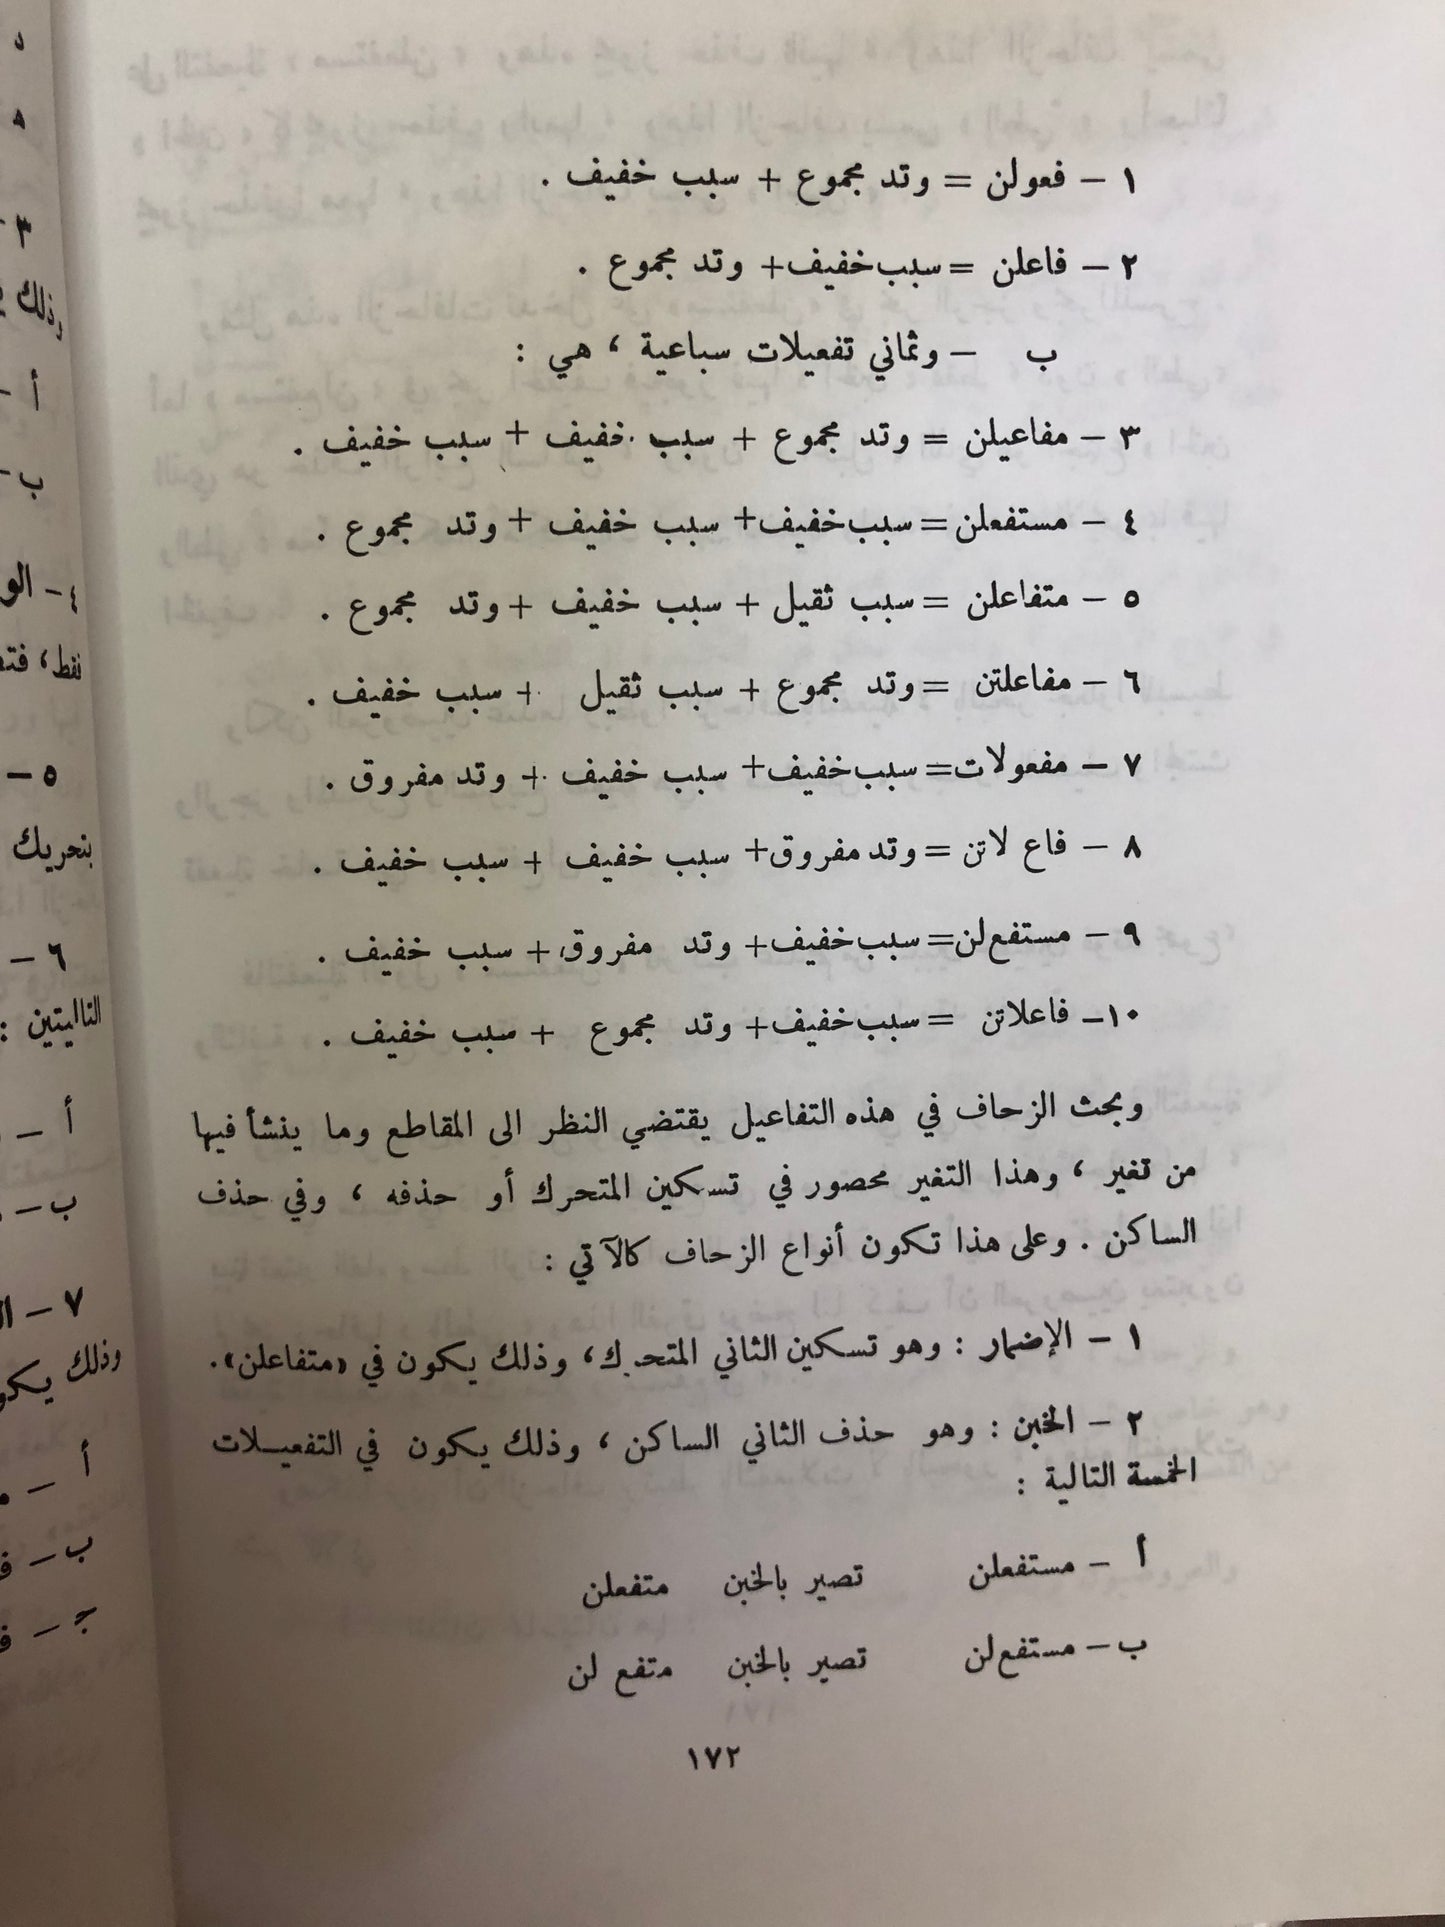 ١ – فعولن = وتد مجموع + سبب خفيف .
٢ – فاعلن = سبب خفيف + وتد مجموع .
ب – وثماني تفعيلات سباعية ، هي :
٣ – مفاعيلن = وتد مجموع + سبب خفيف + سبب خفيف .
٤ – مستفعلن = سبب خفيف + سبب خفيف + وتد مجموع .
٥ – متفاعلن = سبب ثقيل + سبب خفيف + وتد مجموع .
٦ – مفاعلتن = وتد مجموع + سبب ثقيل + سبب خفيف .
٧ – مفعولات = سبب خفيف + سبب خفيف + وتد مفروق .
٨ – فاع لاتن = وتد مفروق + سبب خفيف + سبب خفيف .
٩ – مستفع لن = سبب خفيف + وتد مفروق + سبب خفيف .
١٠ – فاعلاتن = سبب خفيف + وتد مجموع + سبب خفيف .
وبحث الزحاف في هذه التفاعيل يقتضي النظر الى المقاطع وما ينشأ فيها
من تغير ، وهذا التغير محصور في تسكين المتحرك أو حذفه ، وفي حذف
الساكن . وعلى هذا تكون أنواع الزحاف كالآتي :
١ – الإضمار : وهو تسكين الثاني المتحرك ، وذلك يكون في «متفاعلن» .
٢ – الخبن : وهو حذف الثاني الساكن ، وذلك يكون في التفعيلات
الخمسة التالية :
أ – مستفعلن تصير بالخبن متفعلن
ب – مستفع لن تصير بالخبن متفع لن
١٧٢
د
ه
٣ –
وذلك
أ –
ب –
٤ –
٥ –
بتحريك
٦ –
التاليتين :
أ –
ب –
٧ –
وذلك
أ –
ب –
ج –